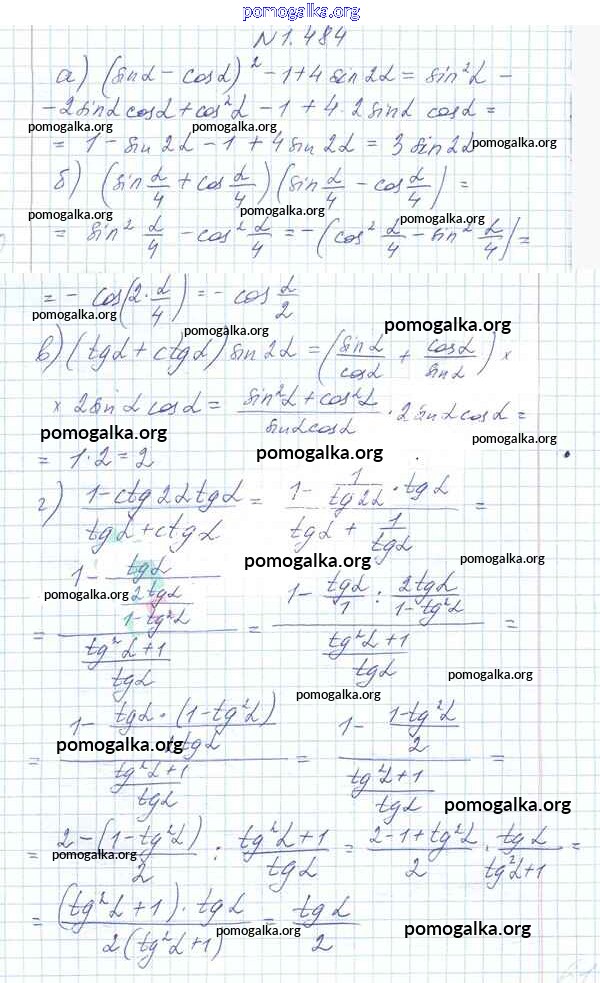 pomogalka.org
N 1.484
а) (sinα − cosα)² − 1 + 4 sin 2α = sin²α −
− 2 sinα cosα + cos²α − 1 + 4 · 2 sinα cosα =
pomogalka.org pomogalka.org
= 1 − sin 2α − 1 + 4 sin 2α = 3 sin 2α pomogalka.org
б) (sin α/4 + cos α/4)(sin α/4 − cos α/4) =
pomogalka.org pomogalka.org pomogalka.org
= sin² α/4 − cos² α/4 = −(cos² α/4 − sin² α/4) =
= − cos(2 · α/4) = − cos α/2
pomogalka.org pomogalka.org pomogalka.org
в) (tgα + ctgα) sin 2α = (sinα/cosα + cosα/sinα) ×
× 2 sinα cosα = (sin²α + cos²α)/(sinα cosα) · 2 sinα cosα =
pomogalka.org pomogalka.org pomogalka.org
= 1 · 2 = 2
г) (1 − ctg 2α tgα)/(tgα + ctgα) = (1 − 1/tg 2α · tgα)/(tgα + 1/tgα) =
pomogalka.org pomogalka.org pomogalka.org
= (1 − tgα/(2tgα/(1 − tg²α)))/((tg²α + 1)/tgα) = (1 − tgα/1 : 2tgα/(1 − tg²α))/((tg²α + 1)/tgα) =
pomogalka.org pomogalka.org
= (1 − tgα · (1 − tg²α)/tgα)/((tg²α + 1)/tgα) = (1 − (1 − tg²α)/2)/((tg²α + 1)/tgα) =
pomogalka.org pomogalka.org
= (2 − (1 − tg²α))/2 : (tg²α + 1)/tgα = (2 − 1 + tg²α)/2 · tgα/(tg²α + 1) =
pomogalka.org
= ((tg²α + 1) · tgα)/(2(tg²α + 1)) = tgα/2
pomogalka.org pomogalka.org